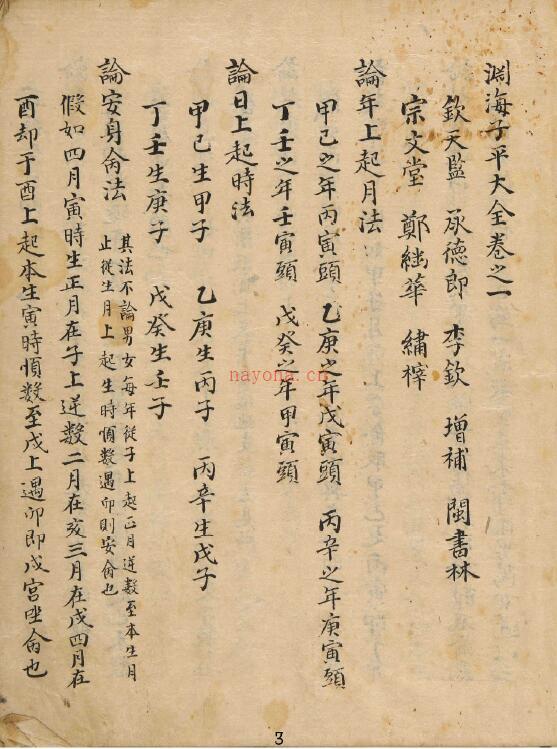 淵海子平大全卷之一
欽天監 承德郎 李欽 增補 閩書林
宗文堂 鄭繼華 繡梓
論年上起月法
甲己之年丙寅頭 乙庚之年戊寅頭 丙辛之年庚寅頭
丁壬之年壬寅頭 戊癸之年甲寅頭
論日上起時法
甲己生甲子 乙庚生丙子 丙辛生戊子
丁壬生庚子 戊癸生壬子
論安身命法 其法不論男女每年從子上起正月逆數至本生月
止從生月上起生時順數遇卯則安命也
假如四月寅時生正月在子上逆數二月在亥三月在戌四月在
酉却于酉上起本生寅時順數至戌上遇卯即戌宮坐命也
nayona.cn
3